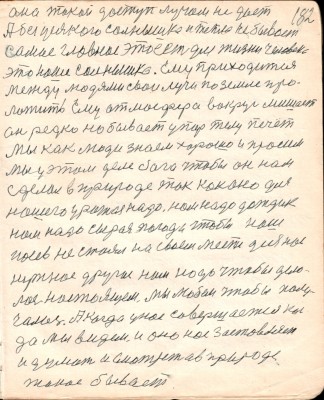 182
она такой доступ лучам не дает
А без всякого солнышка тепла не бывает
самое главное это есть для жизни человека
это наше солнышко. Ему приходится
между людями свои лучи по земле про-
ложить Ему атмосфера вокруг мешает
он редко но бывает упар телу печет
Мы как люди знаем хорошо и просим
мы у этом деле бога чтобы он нам
сделал в природе так как оно для
нашего урожая надо, нам надо дождик
нам надо сырая погода чтобы наш
посев не стоял на своем месте для нас
нужное другое нам надо чтобы дела-
лось настоящем, мы любим чтобы полу-
чалось. А когда у нас совершается ко
да мы видим и оно нас заставляет
и думать и смотреть в природе
такое бывает.